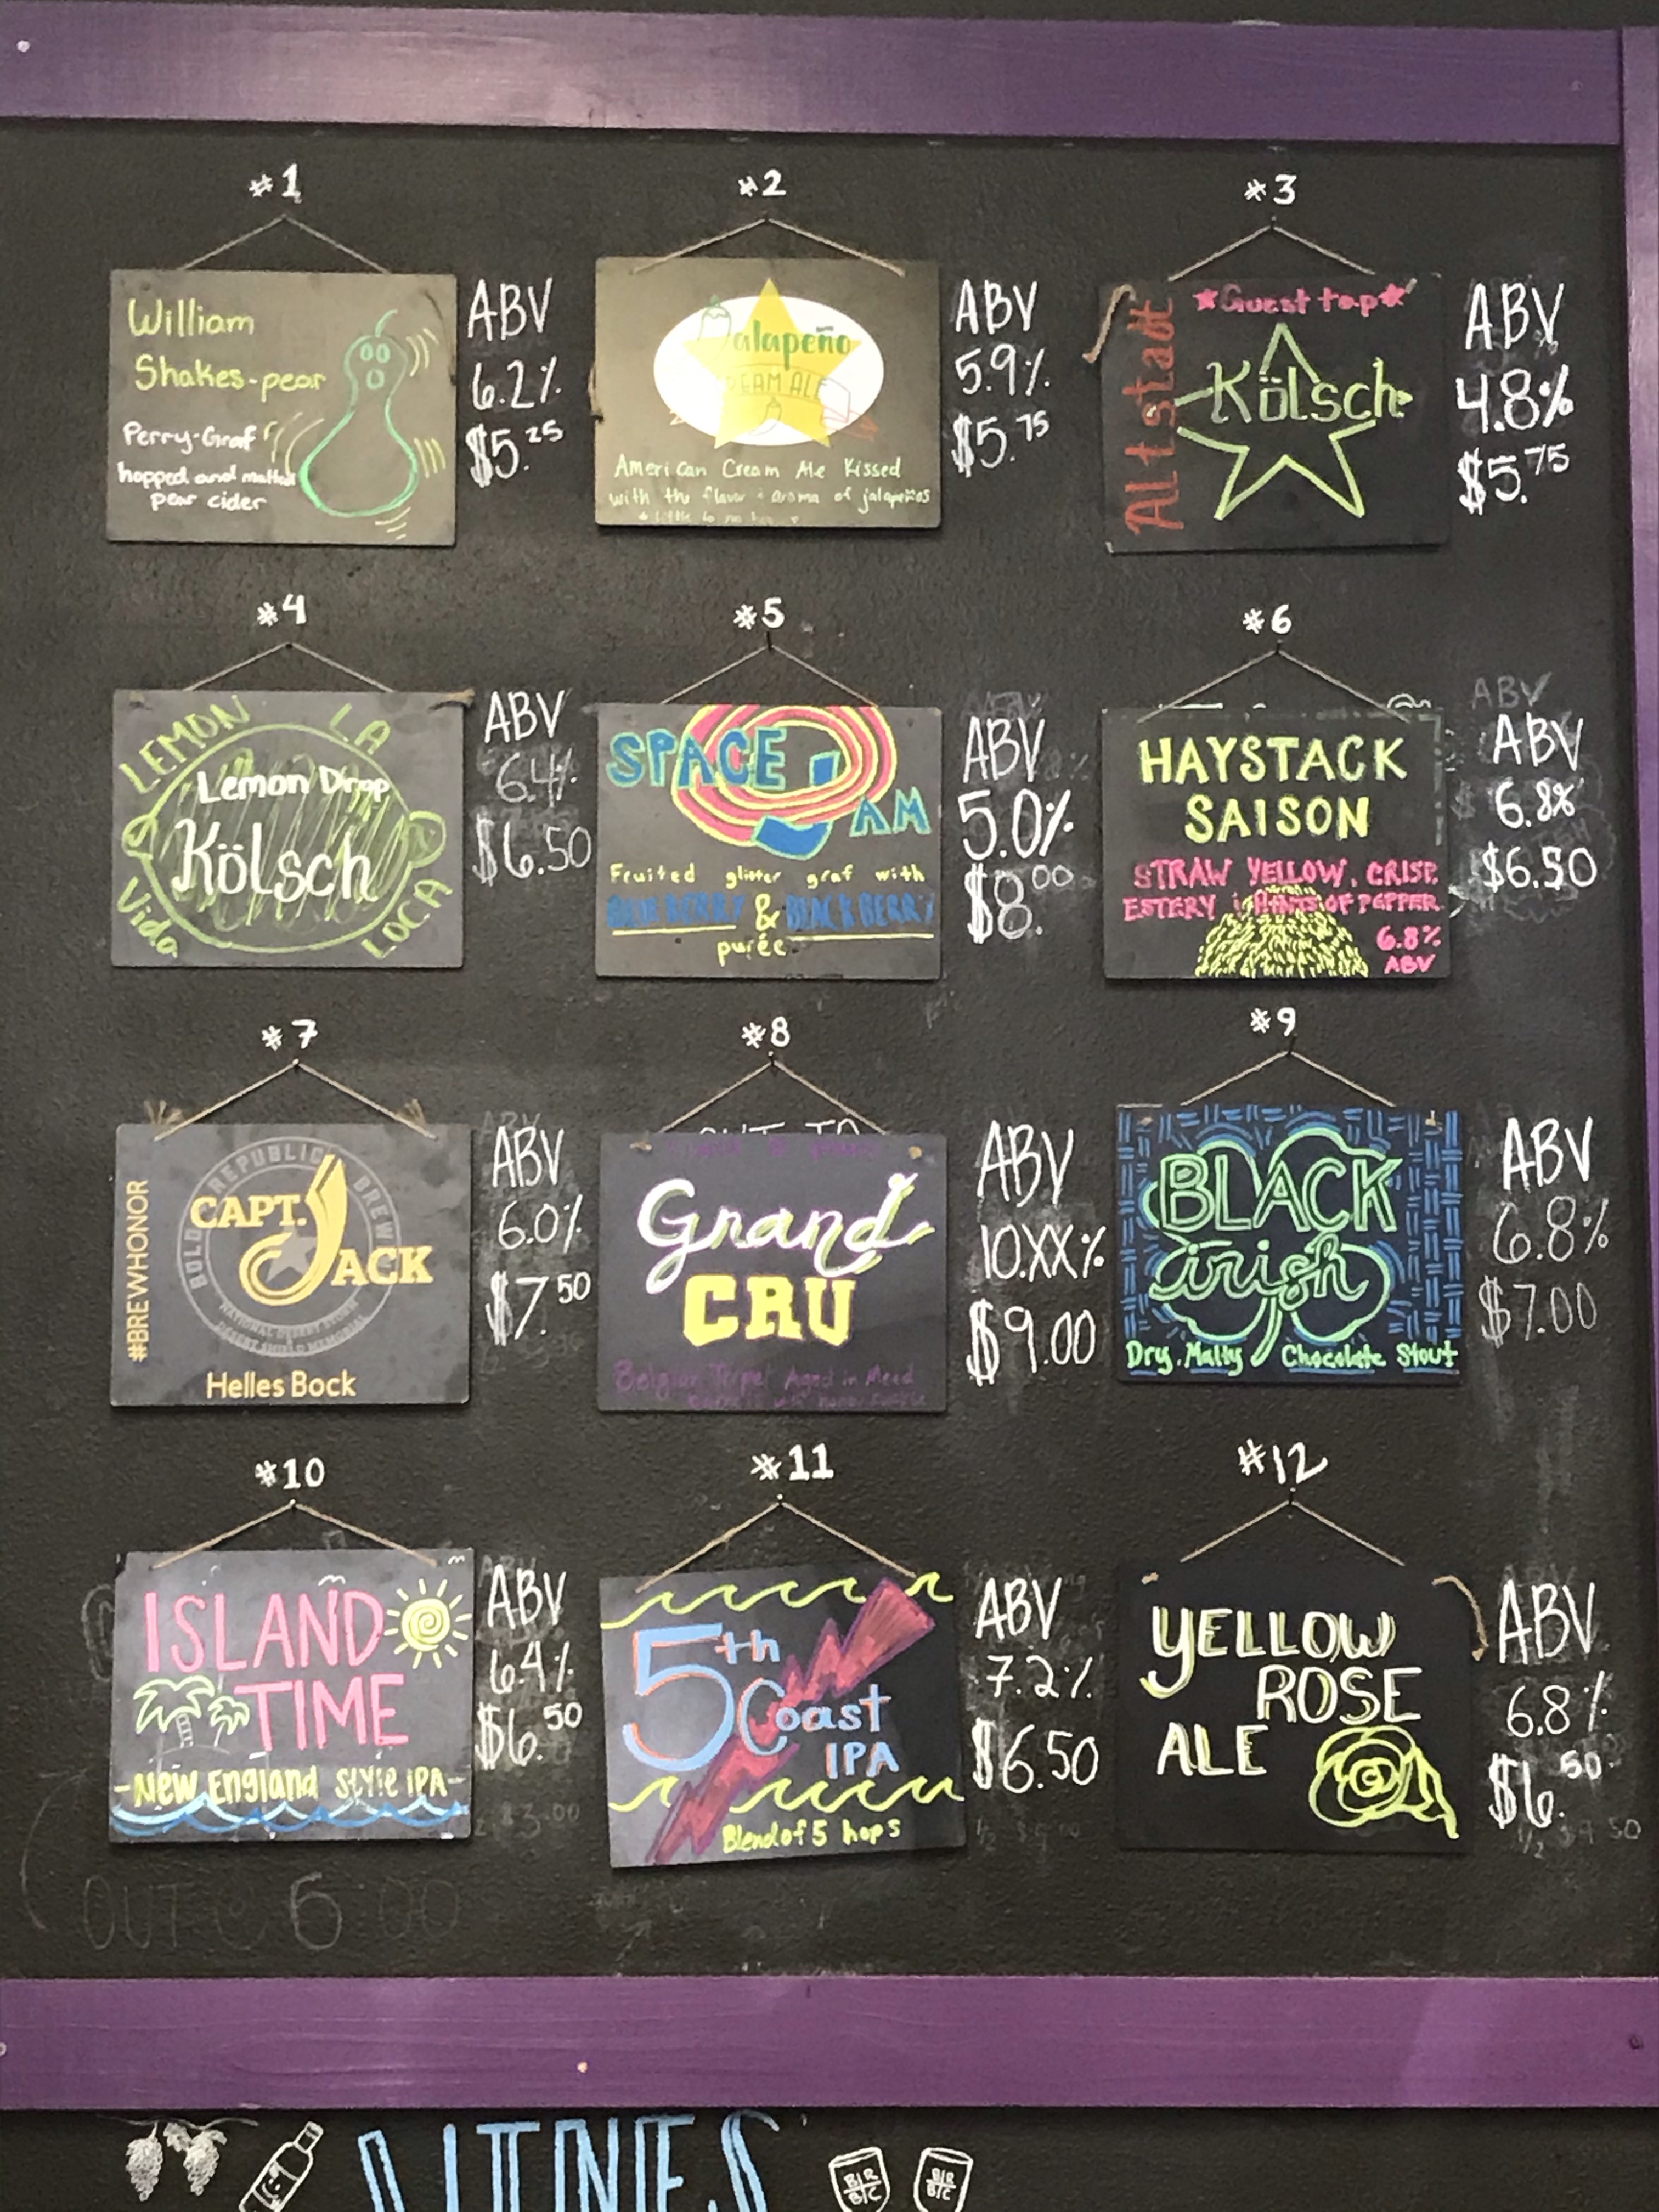 #1
William
Shakes-pear
Perry-Graf
hopped and malted
pear cider
ABV
6.2%
$5.25
#2
Jalapeño
CREAM ALE
American Cream Ale Kissed
with the flavor + aroma of jalapeños
ABV
5.9%
$5.75
#3
Altstadt
★Guest tap★
Kölsch
ABV
4.8%
$5.75
#4
LEMON LA
Lemon Drop
Kölsch
Vida LOCA
ABV
6.4%
$6.50
#5
SPACE
JAM
Fruited glitter graf with
BLUEBERRY & BLACKBERRY
purée
ABV
5.0%
$8.00
#6
HAYSTACK
SAISON
STRAW YELLOW, CRISP,
ESTERY HINTS OF PEPPER
6.8%
ABV
ABV
6.8%
$6.50
#7
#BREWHONOR
BOLD REPUBLIC BREW
CAPT.
JACK
NATIONAL DESERT STORM
DESERT SHIELD MEMORIAL
Helles Bock
ABV
6.0%
$7.50
#8
Grand
CRU
Belgian Tripel Aged in Mead
ABV
10.XX%
$9.00
#9
BLACK
irish
Dry, Malty Chocolate Stout
ABV
6.8%
$7.00
#10
ISLAND
TIME
-New England Style IPA-
ABV
6.4%
$6.50
#11
5th
Coast
IPA
Blend of 5 hops
ABV
7.2%
$6.50
#12
YELLOW
ROSE
ALE
ABV
6.8%
$6.50
OUT @ 6:00